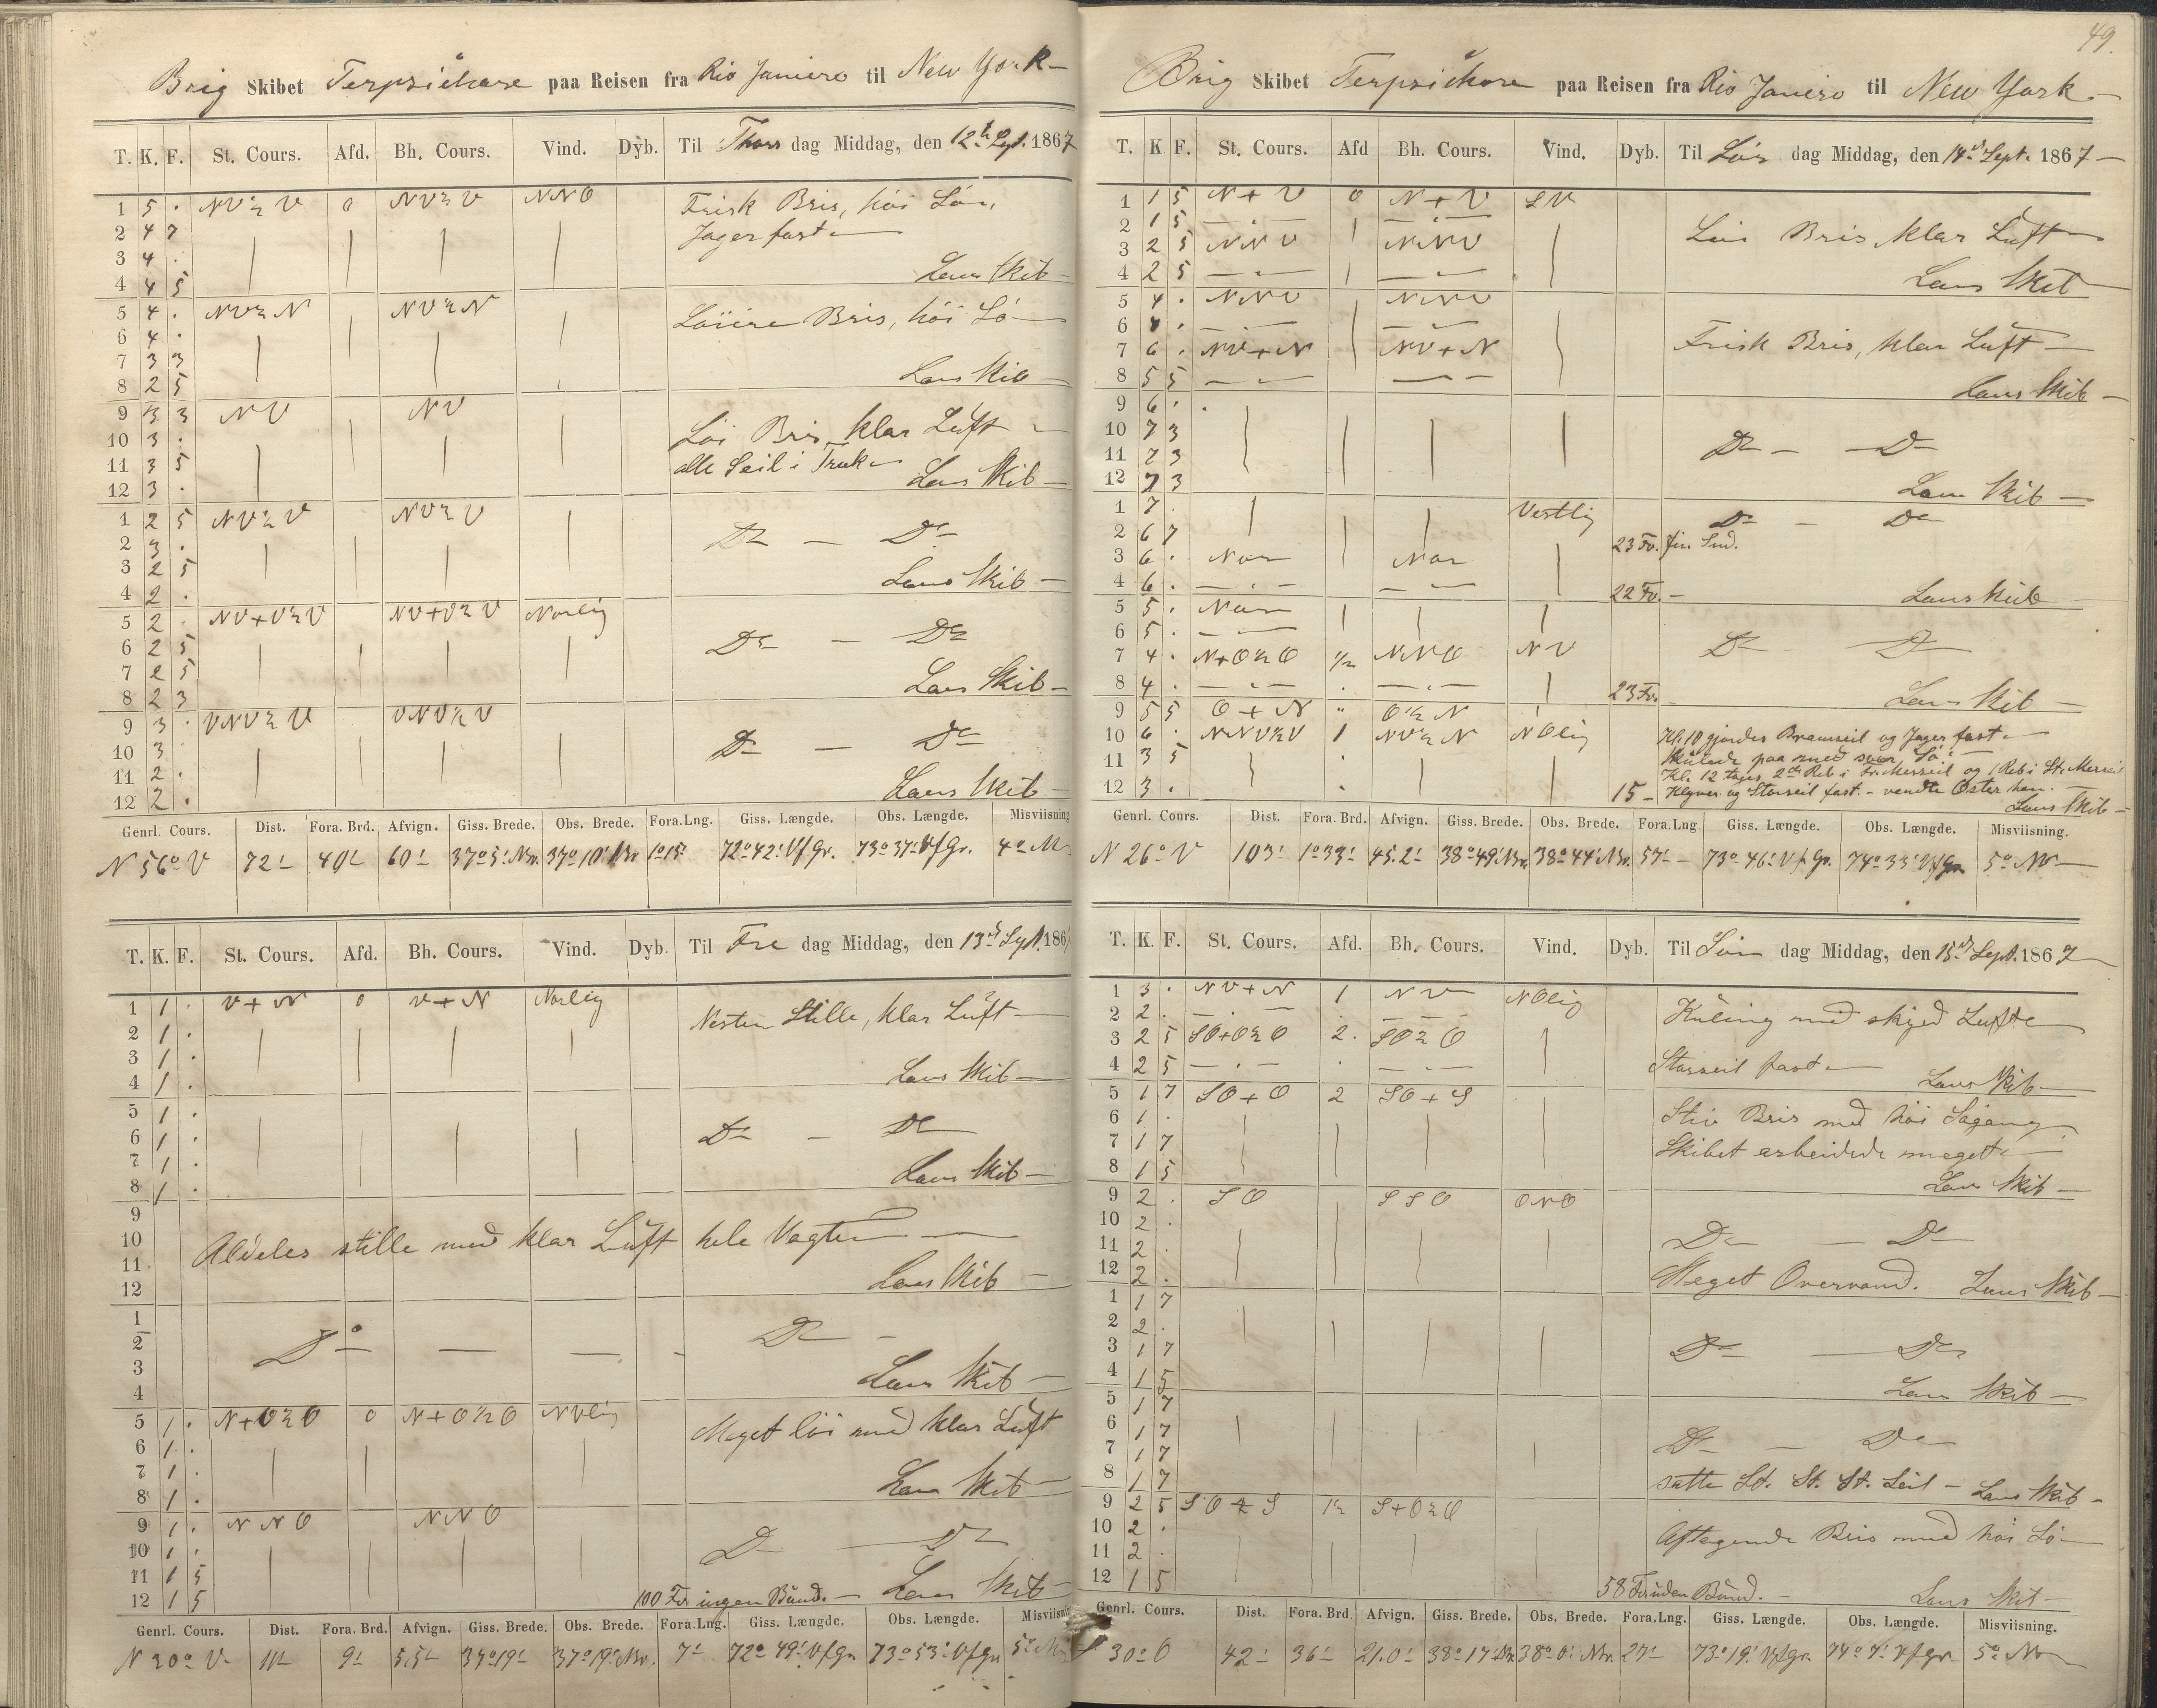 Brig Skibet Terpsichore paa Reisen fra Rio Janiero til New York
T. K. F. St. Cours. Afd. Bh. Cours. Vind. Dyb. Til Thors dag Middag, den 12te Sept. 1867
1 5 . NV½V 0 NV½V NNO Frisk Bris, höi Sö
2 4 7 Jager fast
3 4 .
4 4 5 Lens Skib
5 4 . NV½N NV½N Löiere Bris, höi Sö
6 4 .
7 3 3
8 2 5 Lens Skib
9 3 3 NV NV
10 3 . Löi Bris, klar Luft
11 3 5 alle Seil i Træk
12 3 . Lens Skib
1 2 5 NV½V NV½V
2 3 . Do — Do
3 2 5 Lens Skib
4 2 .
5 2 . NV+V½V NV+V½V Norlig
6 2 5 Do — Do
7 2 5
8 2 3 Lens Skib
9 3 . VNV½V VNV½V
10 3 Do — Do
11 2 .
12 2 . Lens Skib
Genrl. Cours. Dist. Fora. Brd. Afvign. Giss. Brede. Obs. Brede. Fora.Lng. Giss. Længde. Obs. Længde. Misviisning
N 56° V 72' 40' 60' 37° 5' Nr. 37° 10' Nr 1° 15' 72° 42' V f Gr. 73° 37' V f Gr. 4°
T. K. F. St. Cours. Afd. Bh. Cours. Vind. Dyb. Til Fre dag Middag, den 13de Sept. 186
1 1 . V+N 0 V+N Norlig Nesten Stille, klar Luft
2 1 .
3 1 .
4 1 . Lens Skib
5 1 .
6 1 . Do — Do
7 1 .
8 1 . Lens Skib
9
10 Aldeles stille med klar Luft hele Vagten
11
12 Lens Skib
1
2 Do — — - Do
3
4 Lens Skib
5 1 . N+O½O 0 N+O½O NVlig Meget löi med klar Luft
6 1 .
7 1 .
8 1 . Lens Skib
9 1 . NNO NNO
10 1 . Do — Do
11 1 5
12 1 5 100 Fv. ingen Bund. — Lens Skib
Genrl. Cours. Dist. Fora. Brd. Afvign. Giss. Brede. Obs. Brede. Fora.Lng. Giss. Længde. Obs. Længde. Misviisni
N 30° V 11' 9' 5,5' 37° 19' 37° 19' Nr. 7' 72° 49' V f Gr 73° 53' V f Gr 5°
49.
Brig Skibet Terpsichore paa Reisen fra Rio Janiero til New York
T. K F. St. Cours. Afd Bh. Cours. Vind. Dyb. Til Lör dag Middag, den 14de Sept. 1867
1 1 5 N+V 0 N+V SV
2 1 5 — . — — . — Löi Bris, klar Luft
3 2 5 NNV NNV
4 2 5 — . — — . — Lens Skib
5 4 . NNV NNV
6 4 . — . — — . —
7 6 . NV+N NV+N Frisk Bris, klar Luft
8 5 5 — . — — . — Lens Skib
9 6 .
10 7 3 Do — Do
11 7 3
12 7 3 Lens Skib
1 7 . Vestlig Do — Do
2 6 7 23 Fv. fin Snd.
3 6 . Nor Nor
4 6 . — . — — . — 22 Fv. — Lens Skib
5 5 .
6 5 . — . — Do Do
7 4 . N+O½O ½ NNO NV
8 4 . — . — — . — 23 Fv. Lens Skib
9 5 5 O+N " O½N
10 6 . NNV½V 1 NV½N NOlig Kl. 10 gjordes Bramseil og Jager fast
11 3 5 Kulede paa med svær Sö.
12 3 . Kl. 12 toges 2det Reb i For Merseil og 1 Reb i St. Merseil
15 — Klyver og Storseil fast. — vendte Öster hen.
Lens Skib
Genrl. Cours. Dist. Fora. Brd. Afvign. Giss. Brede. Obs. Brede. Fora.Lng Giss. Længde. Obs. Længde. Misviisning.
N 26° V 103' 1° 33' 45.2' 38° 49' Nr. 38° 44' Nr. 57' 73° 46' V f Gr. 74° 33' V f Gr. 5° NV
T. K. F. St. Cours. Afd. Bh. Cours. Vind. Dyb. Til Sön dag Middag, den 15de Sept. 1867
1 3 . NV+N 1 NV NOlig
2 2 . — . — — — Kuling med skyed Luft
3 2 5 SO+O½O 2. SO½O
4 2 5 — . — — . — Storseil fast Lens Skib
5 1 7 SO+O 2 SO+S
6 1 . Stiv Bris med höi Sögang
7 1 7 Skibet arbeidede meget
8 1 5 Lens Skib
9 2 . SO SSO ONO
10 2 .
11 2 . Do — Do
12 2 . Meget Overvand. Lens Skib
1 1 7
2 2 .
3 1 7 Do — Do
4 1 5 Lens Skib
5 1 7
6 1 7
7 1 7 Do — Do
8 1 7 satte St. St. St. Seil — Lens Skib
9 2 5 SO½S 1½ S+O½O
10 2 . Aftagende Bris med höi Sö
11 2 .
12 1 5 58 Fv. uden Bund. — Lens Skib
Genrl. Cours. Dist. Fora. Brd Afvign. Giss. Brede. Obs. Brede. Fora.Lng. Giss. Længde. Obs. Længde. Misviisning.
S 30° O 42' 36' 21.0' 38° 17' Nr. 38° 8' Nr. 27' 73° 19' V f Gr 74° 7' V f Gr 5° NV